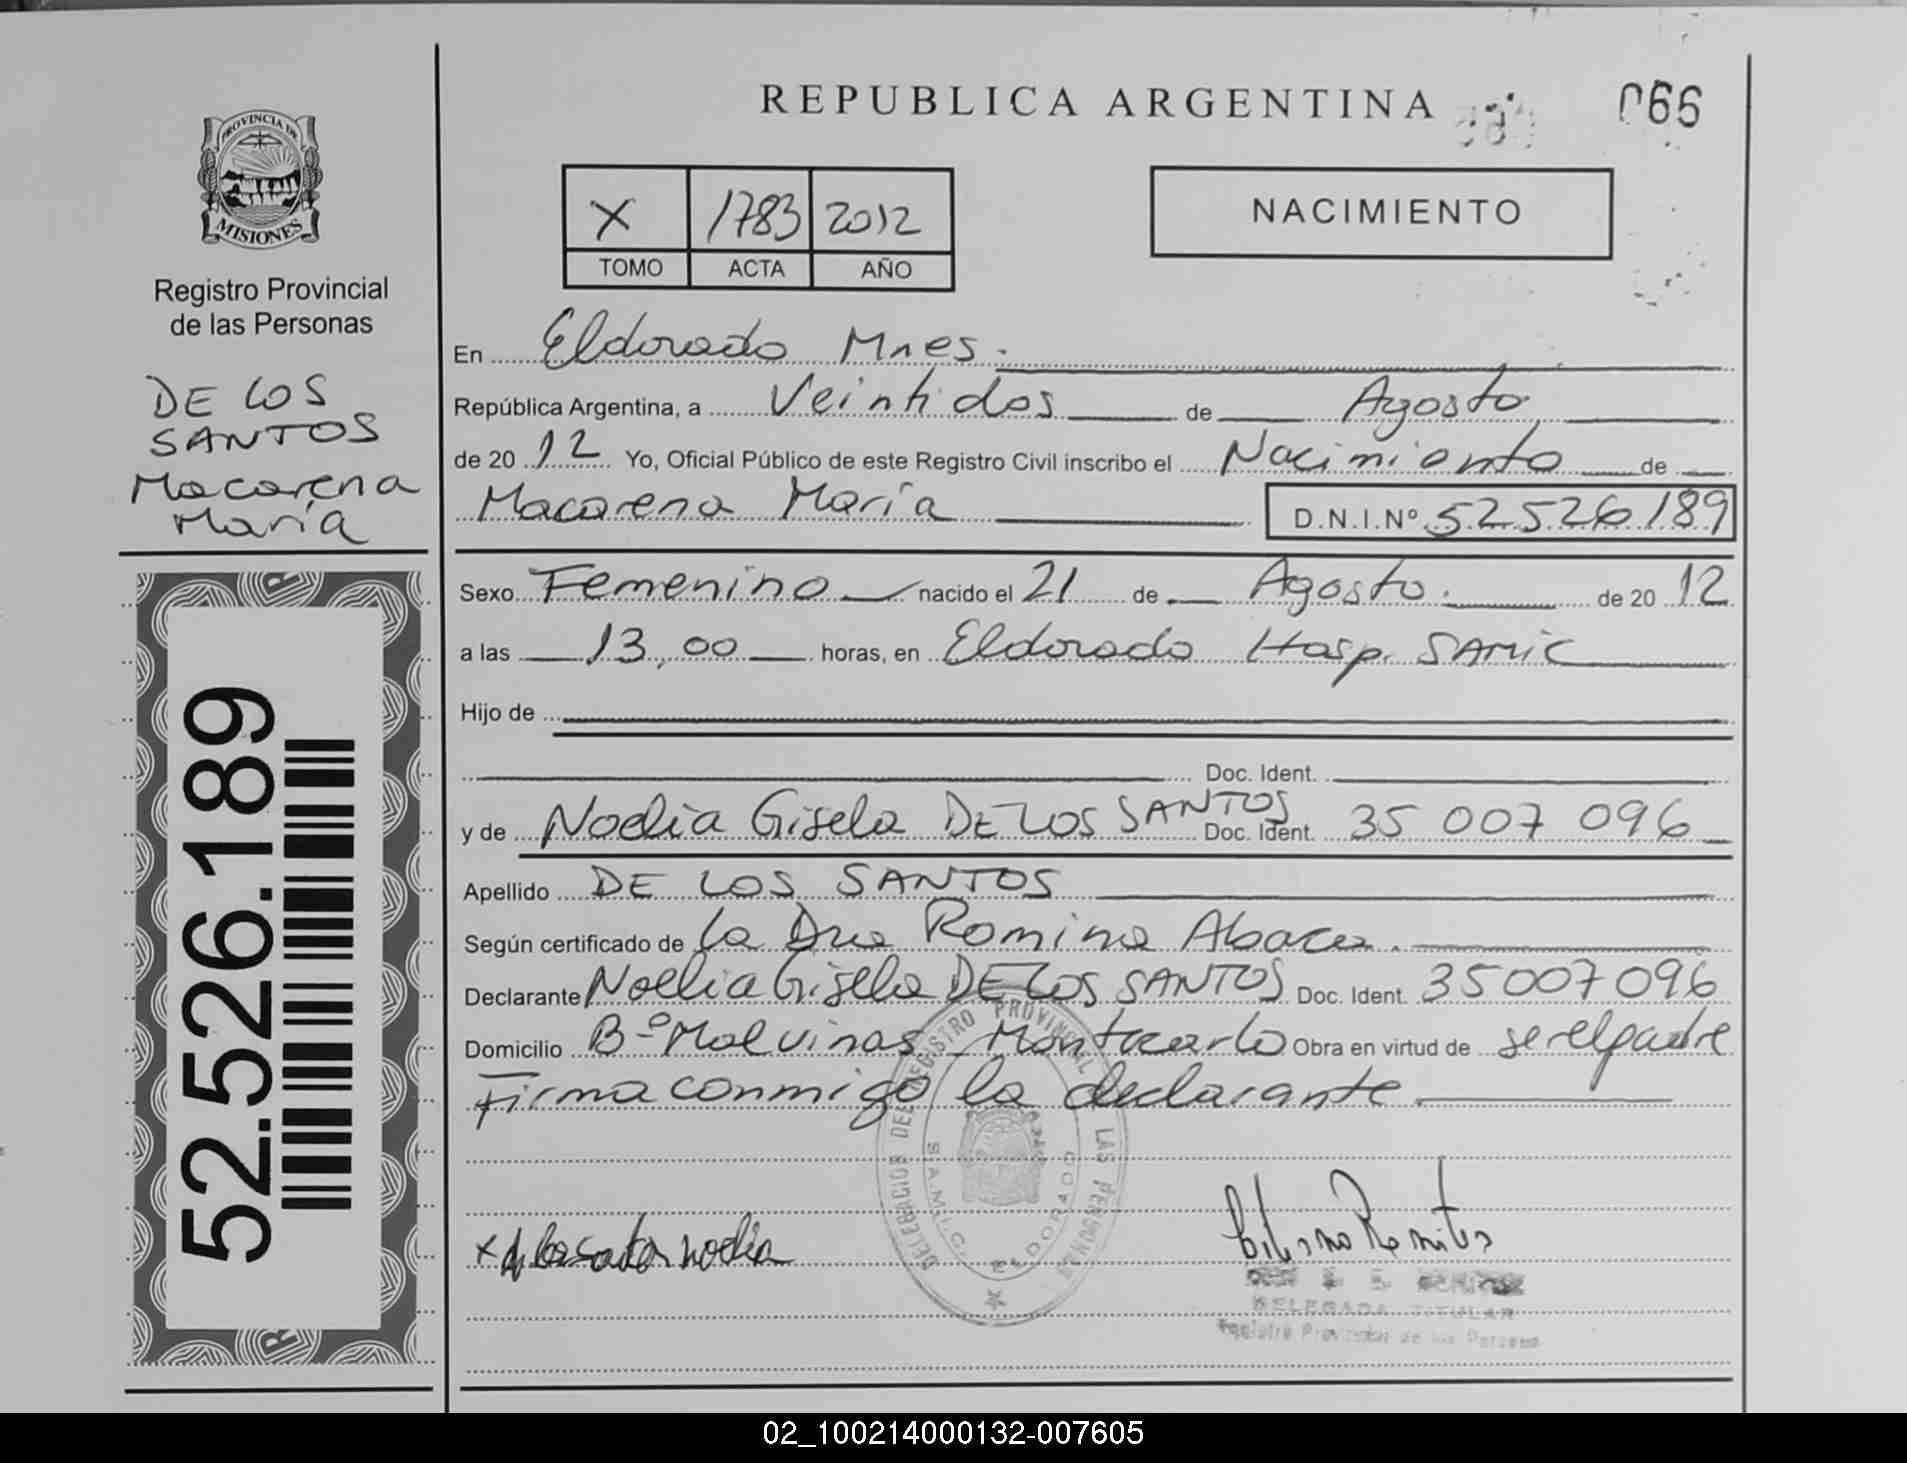 PROVINCIA DE
MISIONES
Registro Provincial
de las Personas
DE LOS
SANTOS
Macarena
María
52.526.189
REPUBLICA ARGENTINA
066
X 1783 2012
TOMO ACTA AÑO
NACIMIENTO
En Eldorado Mnes.
República Argentina, a Veintidos de Agosto
de 2012 Yo, Oficial Público de este Registro Civil inscribo el Nacimiento de
Macarena María D.N.I.Nº 52526189
Sexo Femenino nacido el 21 de Agosto. de 2012
a las 13,00 horas, en Eldorado Hosp. SAMIC
Hijo de
Doc. Ident.
y de Noelia Gisela DE LOS SANTOS Doc. Ident. 35 007 096
Apellido DE LOS SANTOS
Según certificado de la Dra Romina
Declarante Noelia Gisela DE LOS SANTOS Doc. Ident. 35007096
Domicilio Bº Malvinas Montecarlo Obra en virtud de ser el padre
Firma conmigo la declarante
DELEGACION DEL REGISTRO PROVINCIAL LAS PERSONAS
S.A.M.I.C. ELDORADO
x d los santos noelia
DELEGADA TITULAR
Registro Provincial de las Personas
02_100214000132-007605